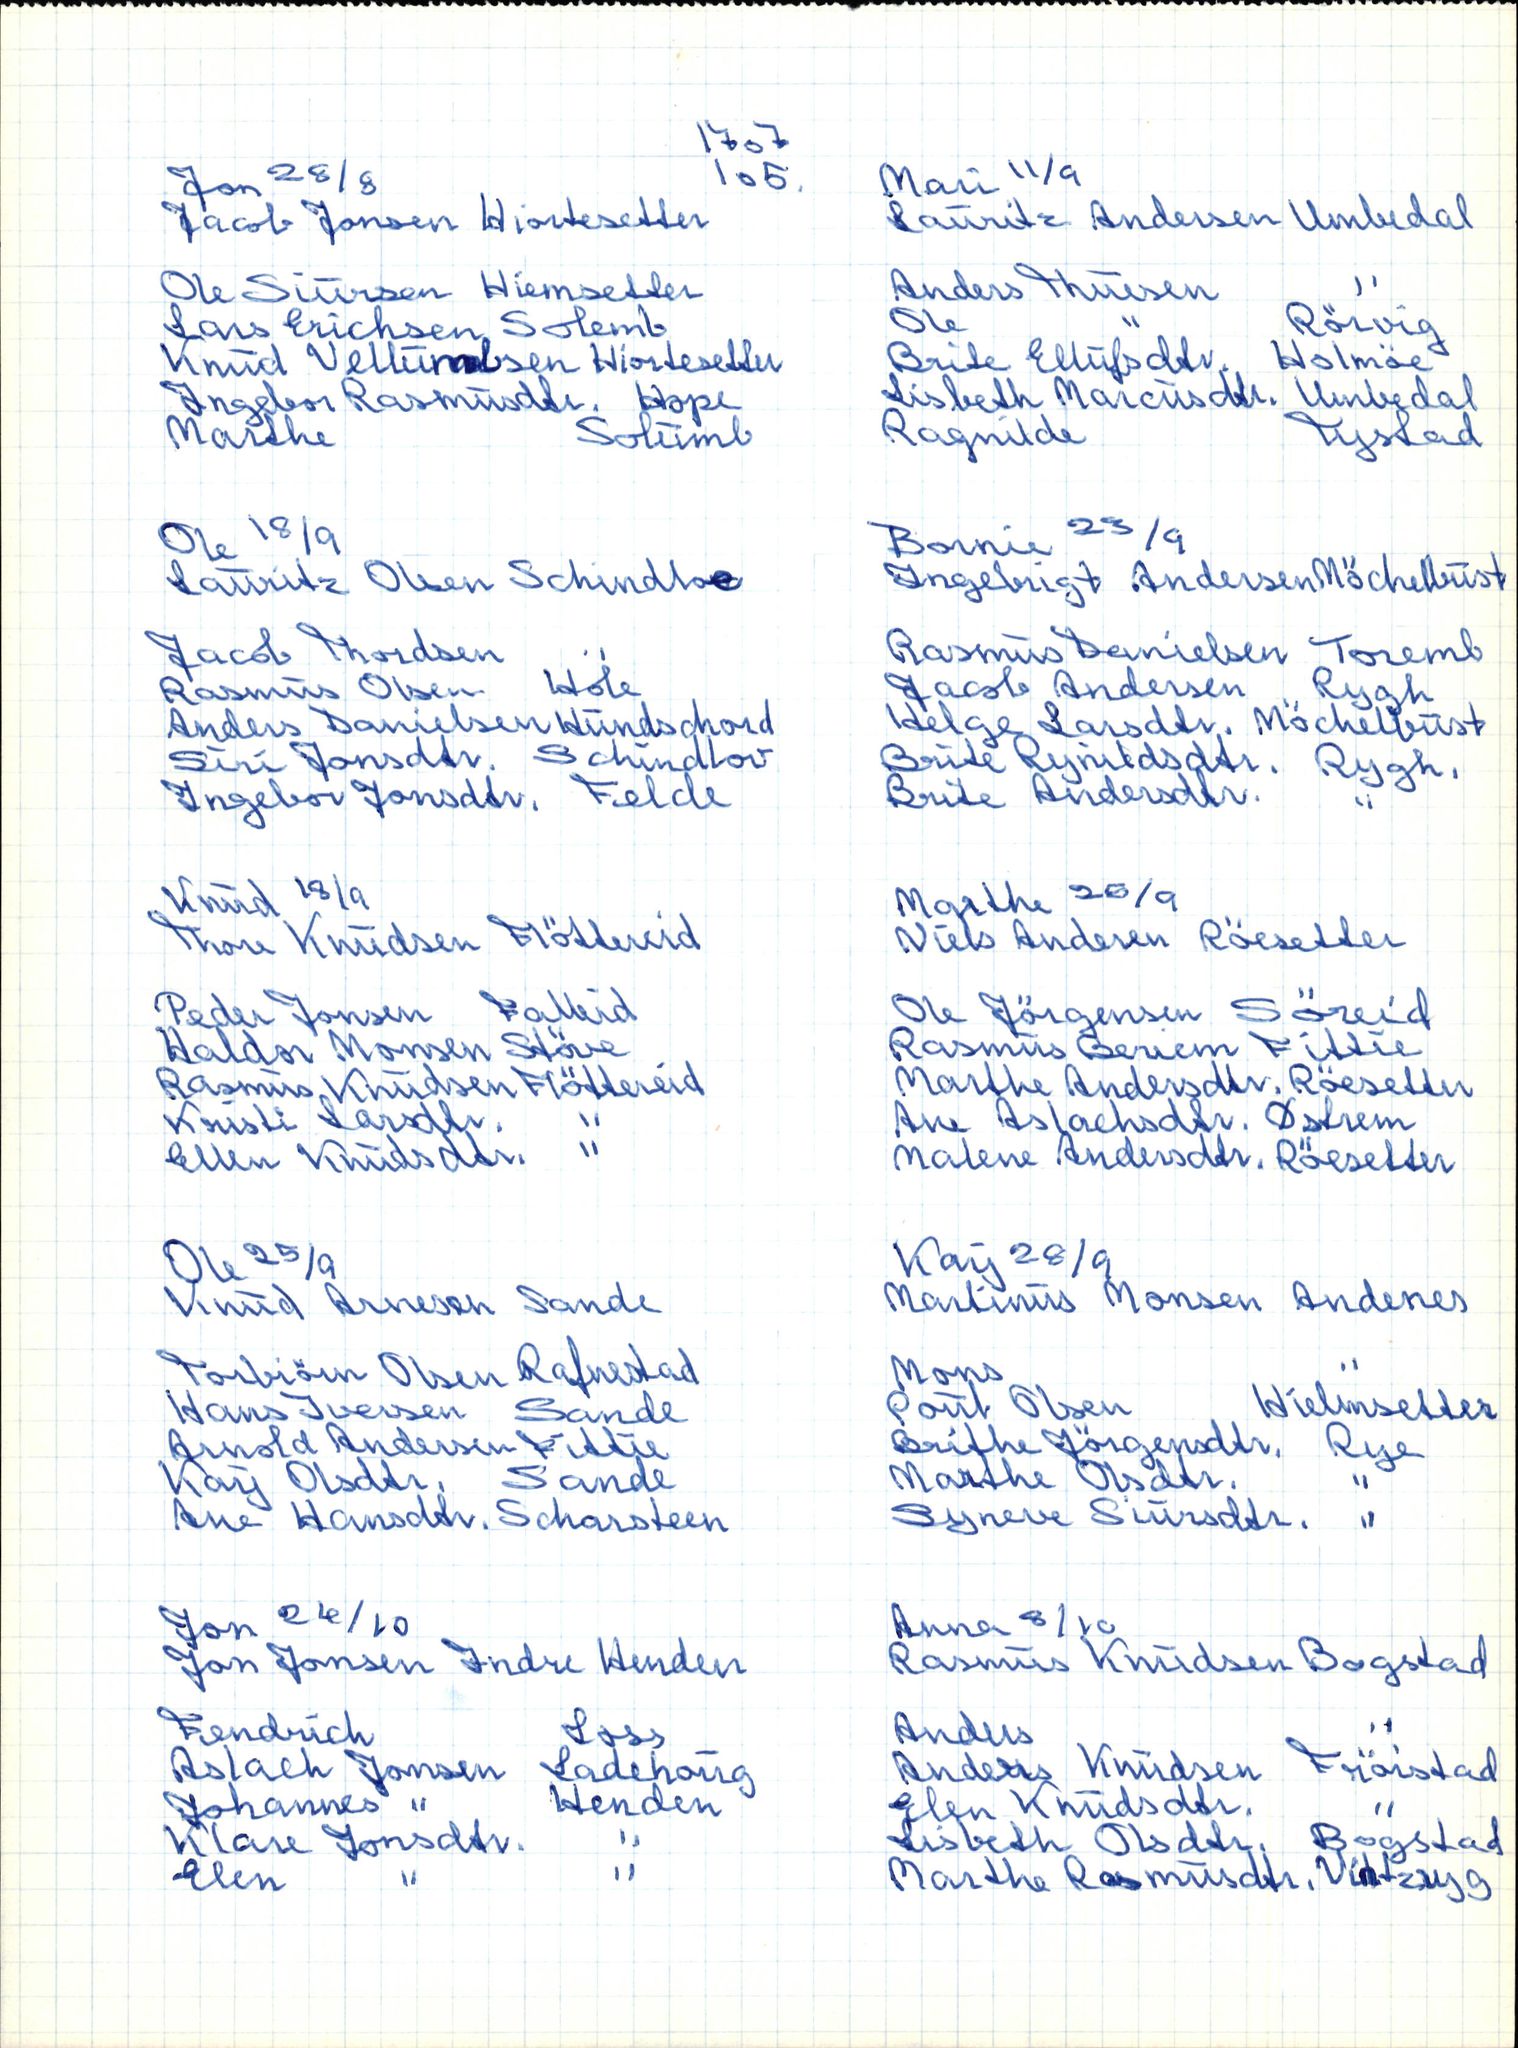 1707
105.
Jon 28/8
Jacob Jonsen Hiortesetter
Ole Siürsen Hiemsetter
Lars Erichsen Solemb
Knüd Vellümbsen Hiortesetter
Ingebor Rasmüsdtr. Hope
Marthe Solümb
Ole 18/9
Laüritz Olsen Schindloe
Jacob Thordsen "
Rasmüs Olsen Hole
Anders Danielsen Hündschord
Siri Jonsdtr. Schindlov
Ingebor Jonsdtr. Felde
Knüd 18/9
Thore Knüdsen Flöttereid
Peder Jonsen Falleid
Haldor Monsen Støve
Rasmüs Knüdsen Flöttereid
Kristi Larsdtr. "
Ellen Knüdsdtr. "
Ole 25/9
Knüd Arnesen Sande
Torbiörn Olsen Rafnestad
Hans Iversen Sande
Arnold Andersen Fittie
Karj Olsdtr. Sande
Ane Hansdtr. Scharsteen
Jon 24/10
Jon Jonsen Indre Henden
Fendrich Loss
Aslach Jonsen Ladehoüg
Johannes " Henden
Klare Jonsdtr. "
Elen " "
Mari 11/9
Laüritz Andersen Umbedal
Anders Thüesen "
Ole " Rörvig
Brite Ellüfsdtr. Holmöe
Lisbeth Marcüsdtr. Umbedal
Ragnilde Tystad
Bornie 23/9
Ingebrigt Andersen Möchelbüst
Rasmüs Danielsen Toremb
Jacob Andersen Rygh
Helge Larsdtr. Möchelbüst
Brite Rynildsdtr. Rygh.
Brite Andersdtr. "
Marthe 26/9
Niels Anderen Röesetter
Ole Jörgensen Söreid
Rasmüs Beriem Fittie
Marthe Andersdtr. Röesetter
Ane Aslachsdtr. Østrem
Malene Andersdtr. Röesetter
Karj 28/9
Martinüs Monsen Andenes
Mons "
Poül Olsen Hielmsetter
Brithe Jörgensdtr. Rye
Marthe Olsdtr. "
Syneve Siürsdtr. "
Anna 8/10
Rasmüs Knüdsen Bogstad
Anders "
Anders Knüdsen Fröistad
Elen Knüdsdtr. "
Lisbeth Olsdtr. Bogstad
Marthe Rasmüsdtr. Vintzryg